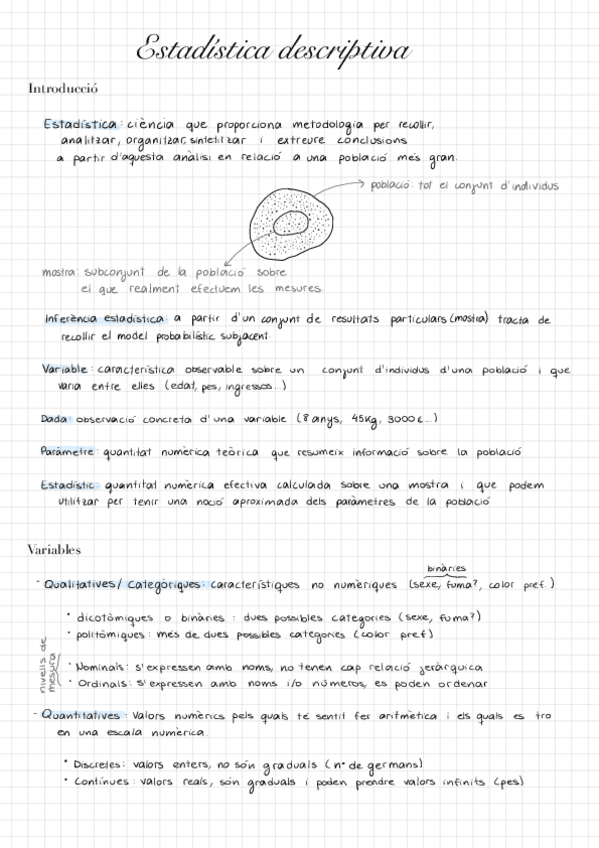 Estadística descriptiva
Introducció
Estadística: ciència que proporciona metodologia per recollir,
analitzar, organitzar, sintetitzar i extreure conclusions
a partir d'aquesta anàlisi en relació a una població més gran.
població: tot el conjunt d'individus
mostra: subconjunt de la població sobre
el que realment efectuem les mesures
Inferència estadística: a partir d'un conjunt de resultats particulars (mostra) tracta de
recollir el model probabilístic subjacent.
Variable: característica observable sobre un conjunt d'individus d'una població i que
varia entre elles (edat, pes, ingressos...)
Dada: observació concreta d'una variable (8 anys, 45kg, 3000€...)
Paràmetre: quantitat numèrica teòrica que resumeix informació sobre la població
Estadístic: quantitat numèrica efectiva calculada sobre una mostra i que podem
utilitzar per tenir una noció aproximada dels paràmetres de la població
Variables
binàries
- Qualitatives / Categòriques: característiques no numèriques (sexe, fuma?, color pref.)
• dicotòmiques o binàries: dues possibles categories (sexe, fuma?)
• politòmiques: més de dues possibles categories (color pref)
nivells de
mesura
• Nominals: s'expressen amb noms, no tenen cap relació jeràrquica
• Ordinals: s'expressen amb noms i/o números, es poden ordenar
- Quantitatives: Valors numèrics pels quals té sentit fer aritmètica i els quals es tro
en una escala numèrica.
• Discretes: valors enters, no són graduals (nº de germans)
• Contínues: valors reals, són graduals i poden prendre valors infinits (pes)